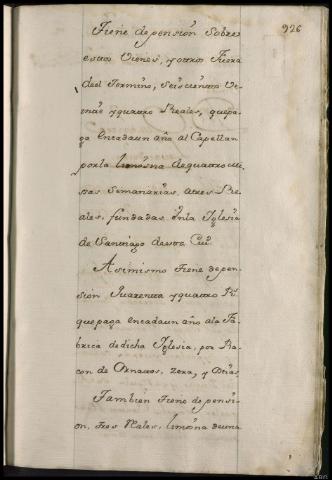 926
Tiene de pension sobre
estos Vienes, y otros fuera
deel Termino, seiscientos ve
inte y quatro Reales, que pa
ga encadaun año al Capellan
por la limosna de quatro Mi
sas semanarias, atres Rs
ales, fundadas Inla Iglesia
de Santiago desta Ciud
Asimismo tiene de pen
sion quarenta y quatro Rs
que paga encadaun año ala Fa
brica de dicha Iglesia, por Ra
con de Ornatos, zera, y
Tambien tiene de pensi
on, tres Reales, limosna de una